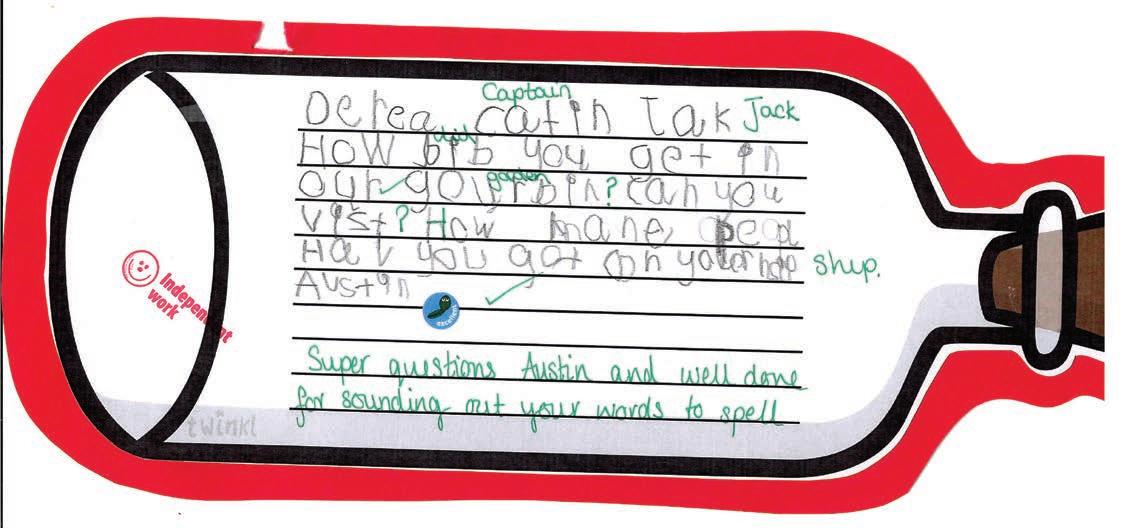 Captain
Derea catin Jak Jack
did
How bib you get in
garden
our ? can you
vist? How mane
Hav you got on ship.
Austin
excellent
Independent
work
Super questions Austin and well done
for sounding out your words to spell
twinkl